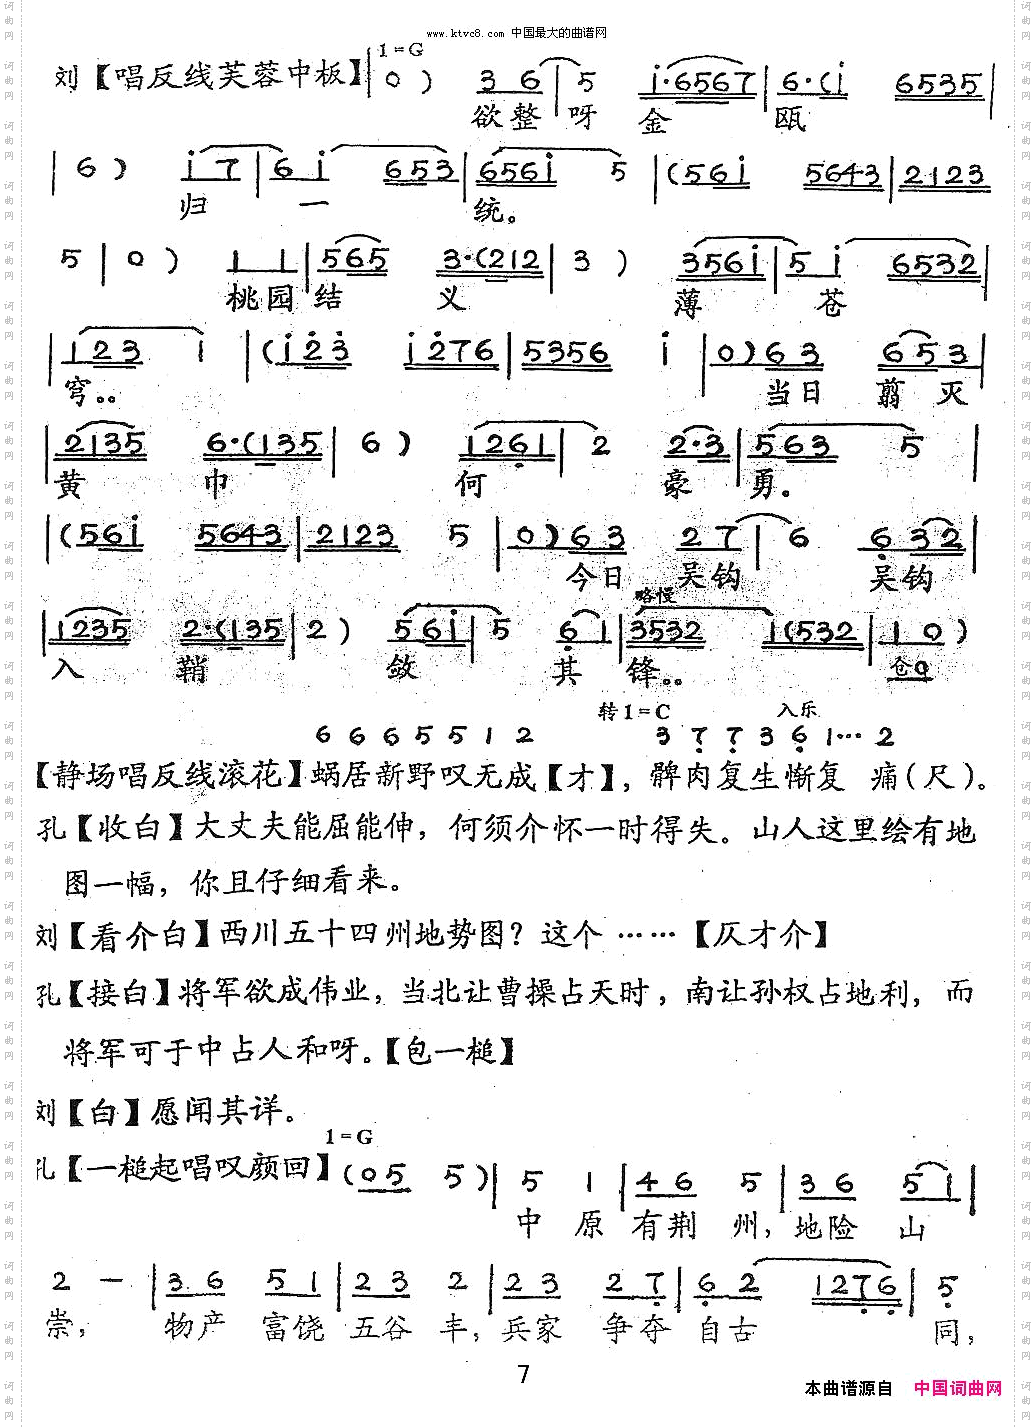 www.ktvc8.com 中国最大的曲谱网
1=G
刘【唱反线芙蓉中板】| 0 ) 3 6 | 5 i·6567 | 6·(i 6535 |
欲整 呀 金 瓯
| 6 ) i 7 | 6 i 653 | 656i 5 | (56i 5643 | 2123
归 一 统。
5 | 0 ) 1 1 | 565 3·(212 | 3 ) 356i | 5 i 6532 |
桃园 结 义 薄 苍
| 123 i | (i23 i276 | 5356 i | 0)63 653 |
穹。。 当日 翦 灭
| 2135 6·(135 | 6 ) 1261 | 2 2·3 | 563 5 |
黄 巾 何 豪 勇。
| (56i 5643 | 2123 5 | 0)63 27 | 6 632 |
今日 吴钩 吴钩
略慢
| 1235 2·(135 | 2 ) 56i | 5 61 | 3532 1(532 | 1 0 )
入 鞘 敛 其 锋。。 仓0
转1=C 入乐
6 6 6 5 5 1 2 3 7 7 3 6 1··· 2
【静场唱反线滚花】蜗居新野叹无成【才】，髀肉复生惭复 痛(尺)。
孔【收白】大丈夫能屈能伸，何须介怀一时得失。山人这里绘有地
图一幅，你且仔细看来。
刘【看介白】西川五十四州地势图？这个 ……【仄才介】
孔【接白】将军欲成伟业，当北让曹操占天时，南让孙权占地利，而
将军可于中占人和呀。【包一槌】
刘【白】愿闻其详。
1=G
孔【一槌起唱叹颜回】(05 5 ) | 5 1 | 46 5 | 36 5i |
中 原 有荆 州，地险 山
2 — | 36 51 | 23 2 | 23 27 | 62 1276 | 5
崇， 物产 富饶 五谷 丰，兵家 争夺 自古 同，
7
本曲谱源自 中国词曲网